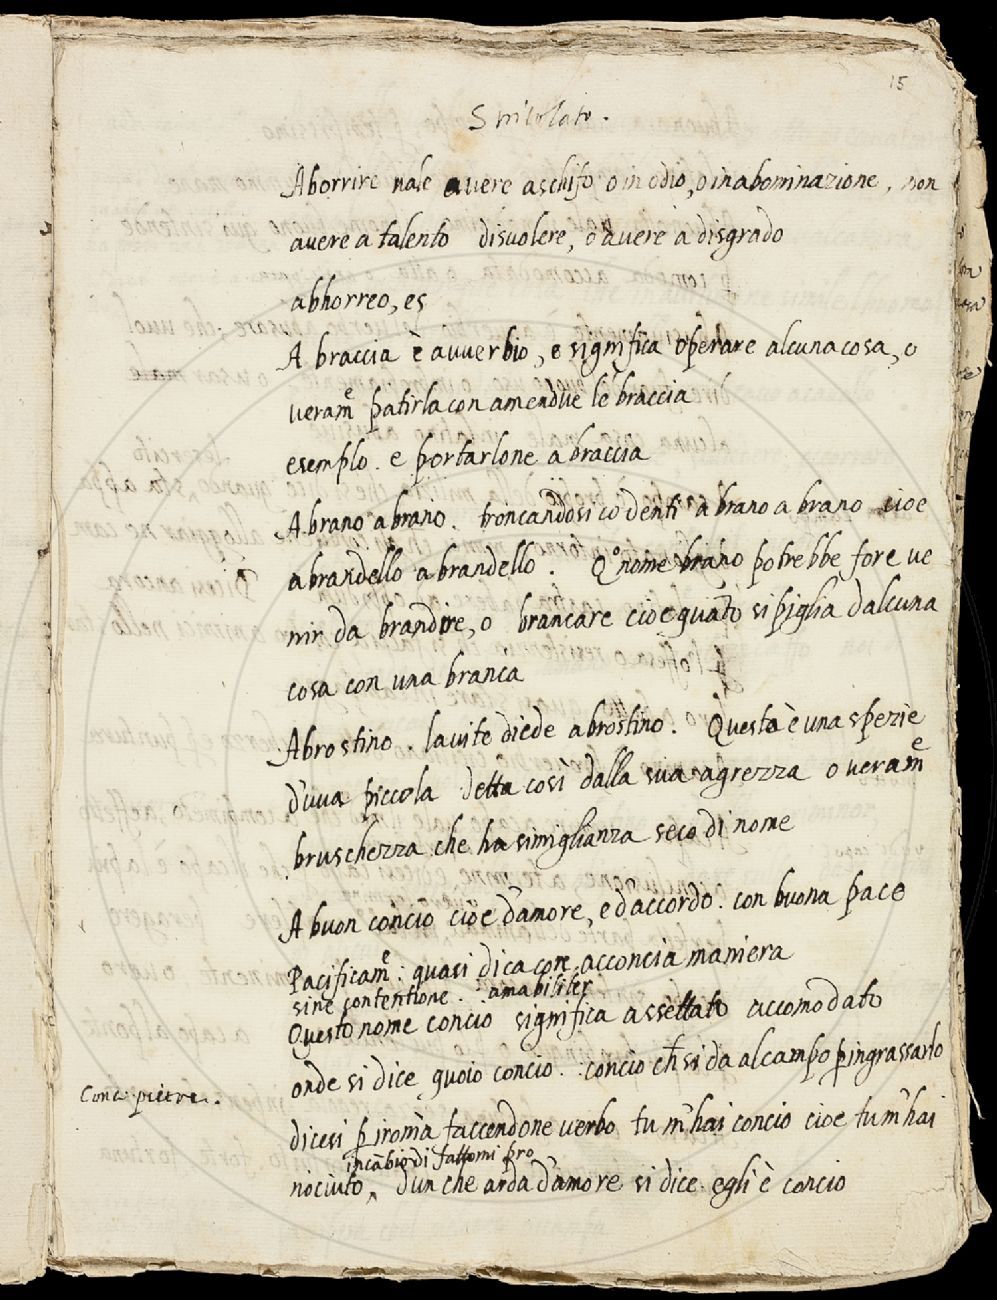 15
Aborrire vale avere aschifo, o in odio, o in abominazione, non
avere a talento disvolere, o avere a disgrado
abhorreo, es
A braccia è avverbio, e significa operare alcuna cosa, o
veramẽ patirla con amendue le braccia
esemplo. e portarlone a braccia
A brano a brano. troncandosi co denti a brano a brano cioe
a brandello a brandello. Q.o nome brano potrebbe fore ve
nir da brandire, o brancare cioe quãto si piglia dalcuna
cosa con una branca
Abrostino. la vite diede abrostino. Questa è una spezie
d'uva piccola detta cosi dalla sua agrezza o veramẽ
bruschezza che ha simiglianza seco di nome
A buon concio cioe d'amore, e daccordo. con buona pace
Pacificamẽ: quasi dica con acconcia maniera
sine contentione. amabiliter
Questo nome concio significa assettato accomodato
onde si dice quoio concio. concio ch̃ si da al campo p ingrassarlo
Conc pietre.
dicesi p ironia faccendone verbo tu m'hai concio cioe tu m'hai
incãbio di fattomi pro
nociuto, dun che arda d'amore si dice egli è concio